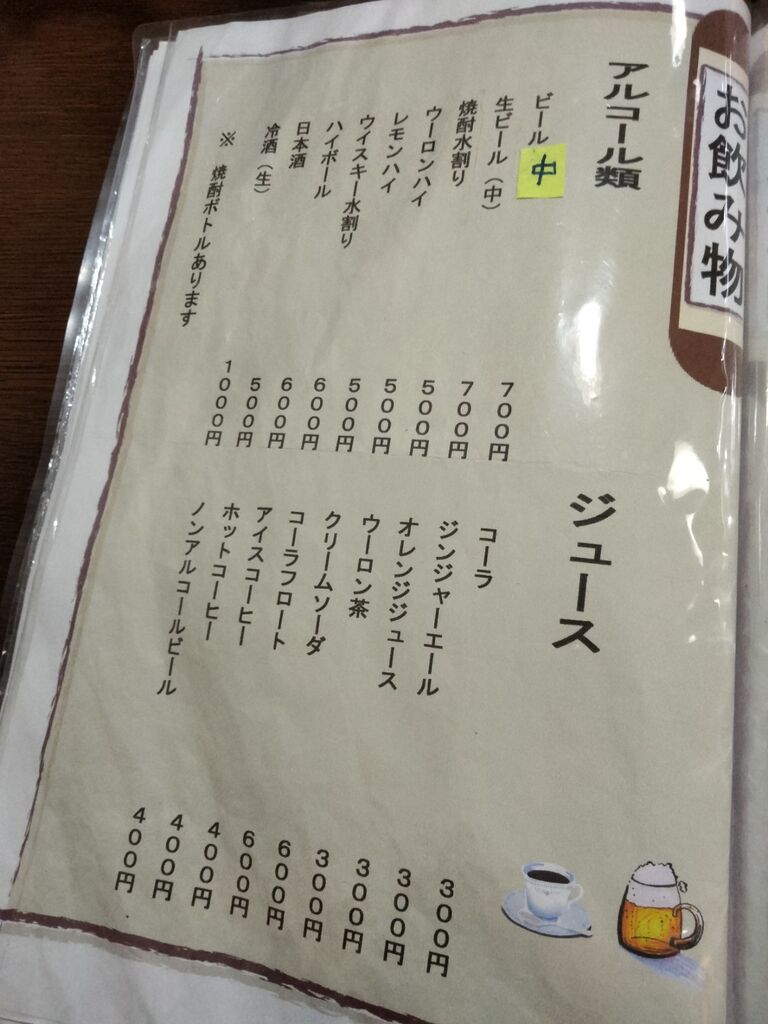 お飲み物
アルコール類
ビール 中 700円
生ビール(中) 700円
焼酎水割り 500円
ウーロンハイ 500円
レモンハイ 500円
ウイスキー水割り 600円
ハイボール 600円
日本酒 500円
冷酒(生) 1000円
※ 焼酎ボトルあります
ジュース
コーラ 300円
ジンジャーエール 300円
オレンジジュース 300円
ウーロン茶 300円
クリームソーダ 600円
コーラフロート 600円
アイスコーヒー 400円
ホットコーヒー 400円
ノンアルコールビール 400円